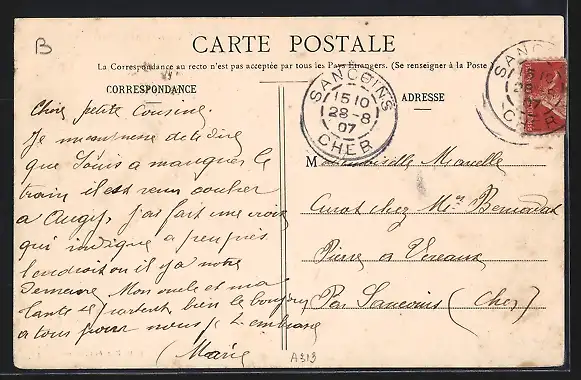 B
CARTE POSTALE
La Correspondance au recto n'est pas acceptée par tous les Pays Étrangers. (Se renseigner à la Poste
CORRESPONDANCE
ADRESSE
SANCOINS
15 10
28-8
07
CHER
SANCOINS
CHER
Chère petite Cousine.
Je de te dire
que Louis a manquer le
train il est venu coucher
a Augy, j'ai fait une croix
qui indique a peu près
l'endroit ou il y a notre
Demeure Mon oncle et ma
tante se portent bien le bonjour
a tous pour nous je t embrasse
(Marie
Mademoiselle Marcelle
chez Mr
Pierre a Vereaux
Par Sancoins (Cher)
A313